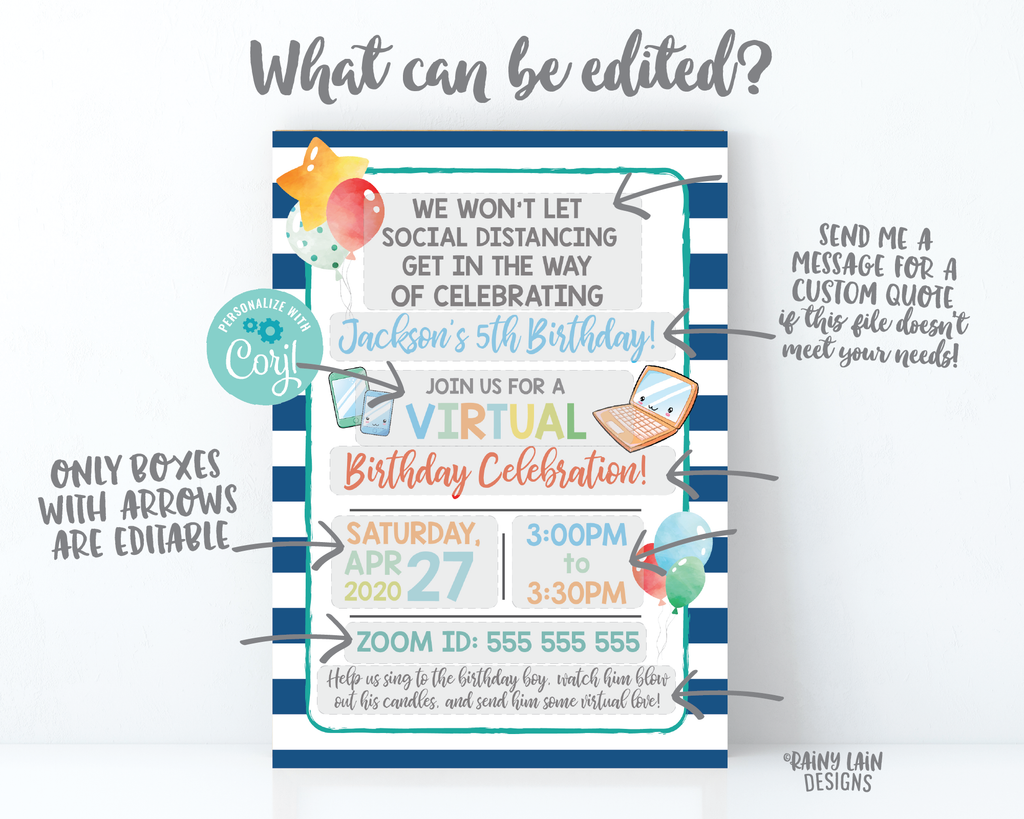 What can be edited?
WE WON'T LET
SOCIAL DISTANCING
GET IN THE WAY
OF CELEBRATING
Jackson's 5th Birthday!
PERSONALIZE WITH
Corjl
JOIN US FOR A
VIRTUAL
Birthday Celebration!
SATURDAY,
APR
2020
27
3:00PM
to
3:30PM
ZOOM ID: 555 555 555
Help us sing to the birthday boy, watch him blow
out his candles, and send him some virtual love!
SEND ME A
MESSAGE FOR A
CUSTOM QUOTE
if this file doesn't
meet your needs!
ONLY BOXES
WITH ARROWS
ARE EDITABLE
©RAINY LAIN
DESIGNS